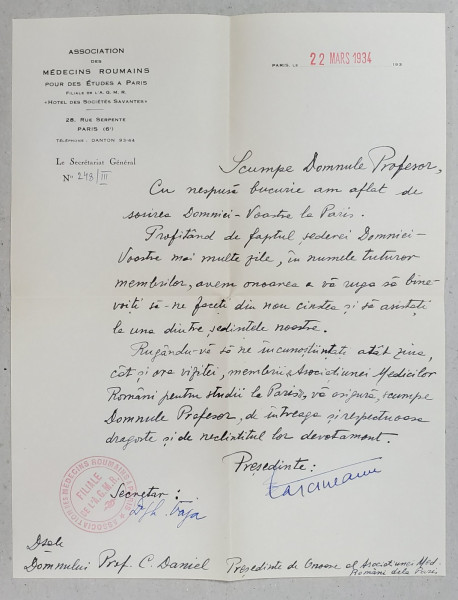 ASSOCIATION
DES
MÉDECINS ROUMAINS
POUR DES ÉTUDES A PARIS
FILIALE DE L'A. G. M. R.
«HOTEL DES SOCIÉTÉS SAVANTES»
28, RUE SERPENTE
PARIS (6e)
TÉLÉPHONE: DANTON 93-64
Le Secrétariat Général
No 248/III
PARIS, LE 22 MARS 1934 193
Scumpe Domnule Profesor,
Cu nespusă bucurie am aflat de
sosirea Domniei-Voastre la Paris.
Profitând de faptul șederei Domniei-
Voastre mai multe zile, în numele tuturor
membrilor, avem onoarea a vă ruga să bine-
voiți să-ne faceți din nou cinstea și să asistați
la una dintre ședințele noastre.
Rugându-vă să ne încunoștiințați atât ziua,
cât și ora vizitei, membrii Asociațiunei Medicilor
Români pentru studii la Paris, vă asigură, scumpe
Domnule Profesor, de întreaga și respectuoasa
dragoste și de neclintitul lor devotament.
Președinte:
Secretar:
FILIALE DE L'A.G.M.R.
Dsale
Domnului Prof. C. Daniel Președinte de Onoare al Asociațiunei Med.
Români dela Paris